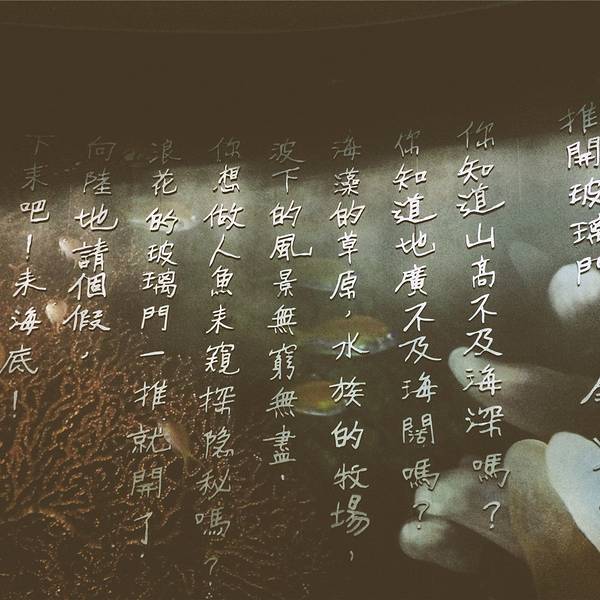 推開玻璃門
你知道山高不及海深嗎？
你知道地廣不及海闊嗎？
海藻的草原，水族的牧場，
波下的風景無窮無盡．
你想做人魚來窺探隐秘嗎？
浪花的玻璃門一推就開了．
向陸地請個假，
下來吧！來海底！